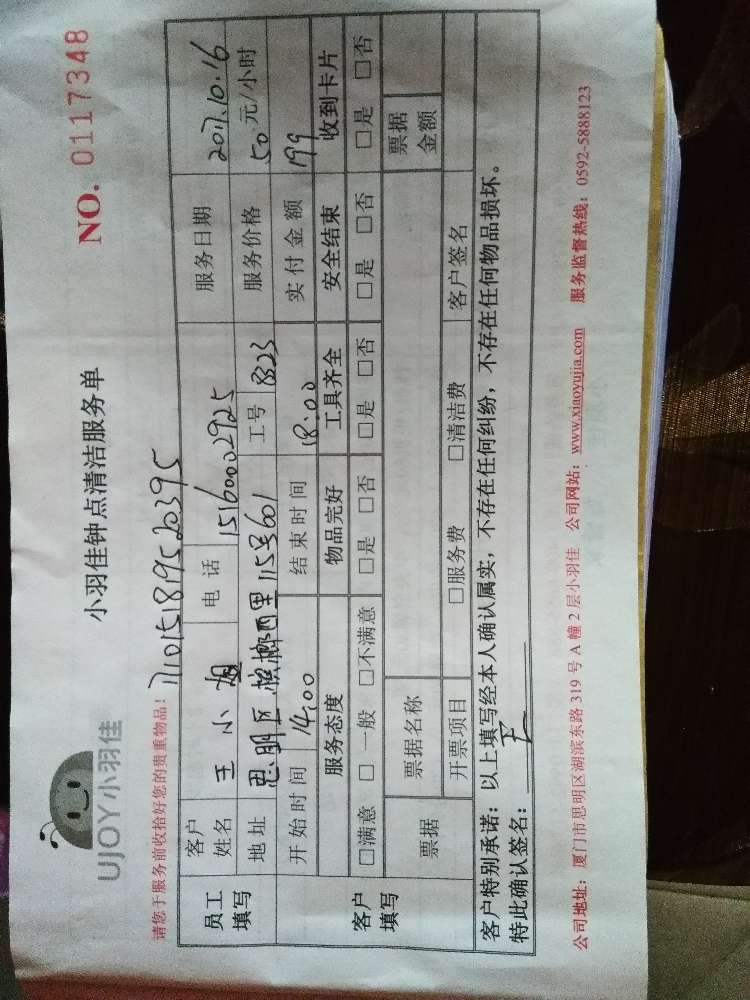 UJOY小羽佳
小羽佳钟点清洁服务单
NO. 0117348
请您于服务前收拾好您的贵重物品！
171015181952039 5
员工填写 客户姓名 王小姐 电话 15160002925 服务日期 2017.10.16
地址 思明区槟榔西里115号601 工号 8323 服务价格 50元/小时
客户填写 开始时间 14:00 结束时间 18:00 实付金额 199
服务态度 物品完好 工具齐全 安全结束 收到卡片
□满意 □一般 □不满意 □是 □否 □是 □否 □是 □否 □是 □否
票据 票据名称 票据金额
开票项目 □服务费 □清洁费 客户签名
客户特别承诺：以上填写经本人确认属实，不存在任何纠纷，不存在任何物品损坏。
特此确认签名：
公司地址：厦门市思明区湖滨东路 319 号 A 幢 2 层小羽佳 公司网站：www.xiaoyujia.com 服务监督热线：0592-5888123